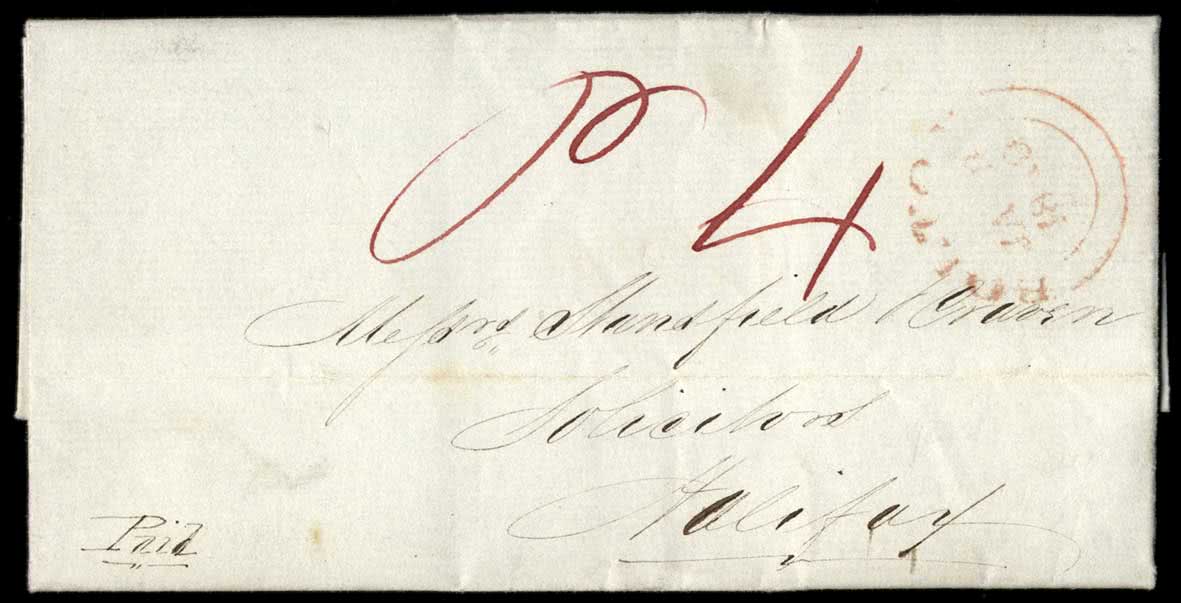 P 4
Messrs Stansfield & Craven
Solicitors
Halifax
Paid